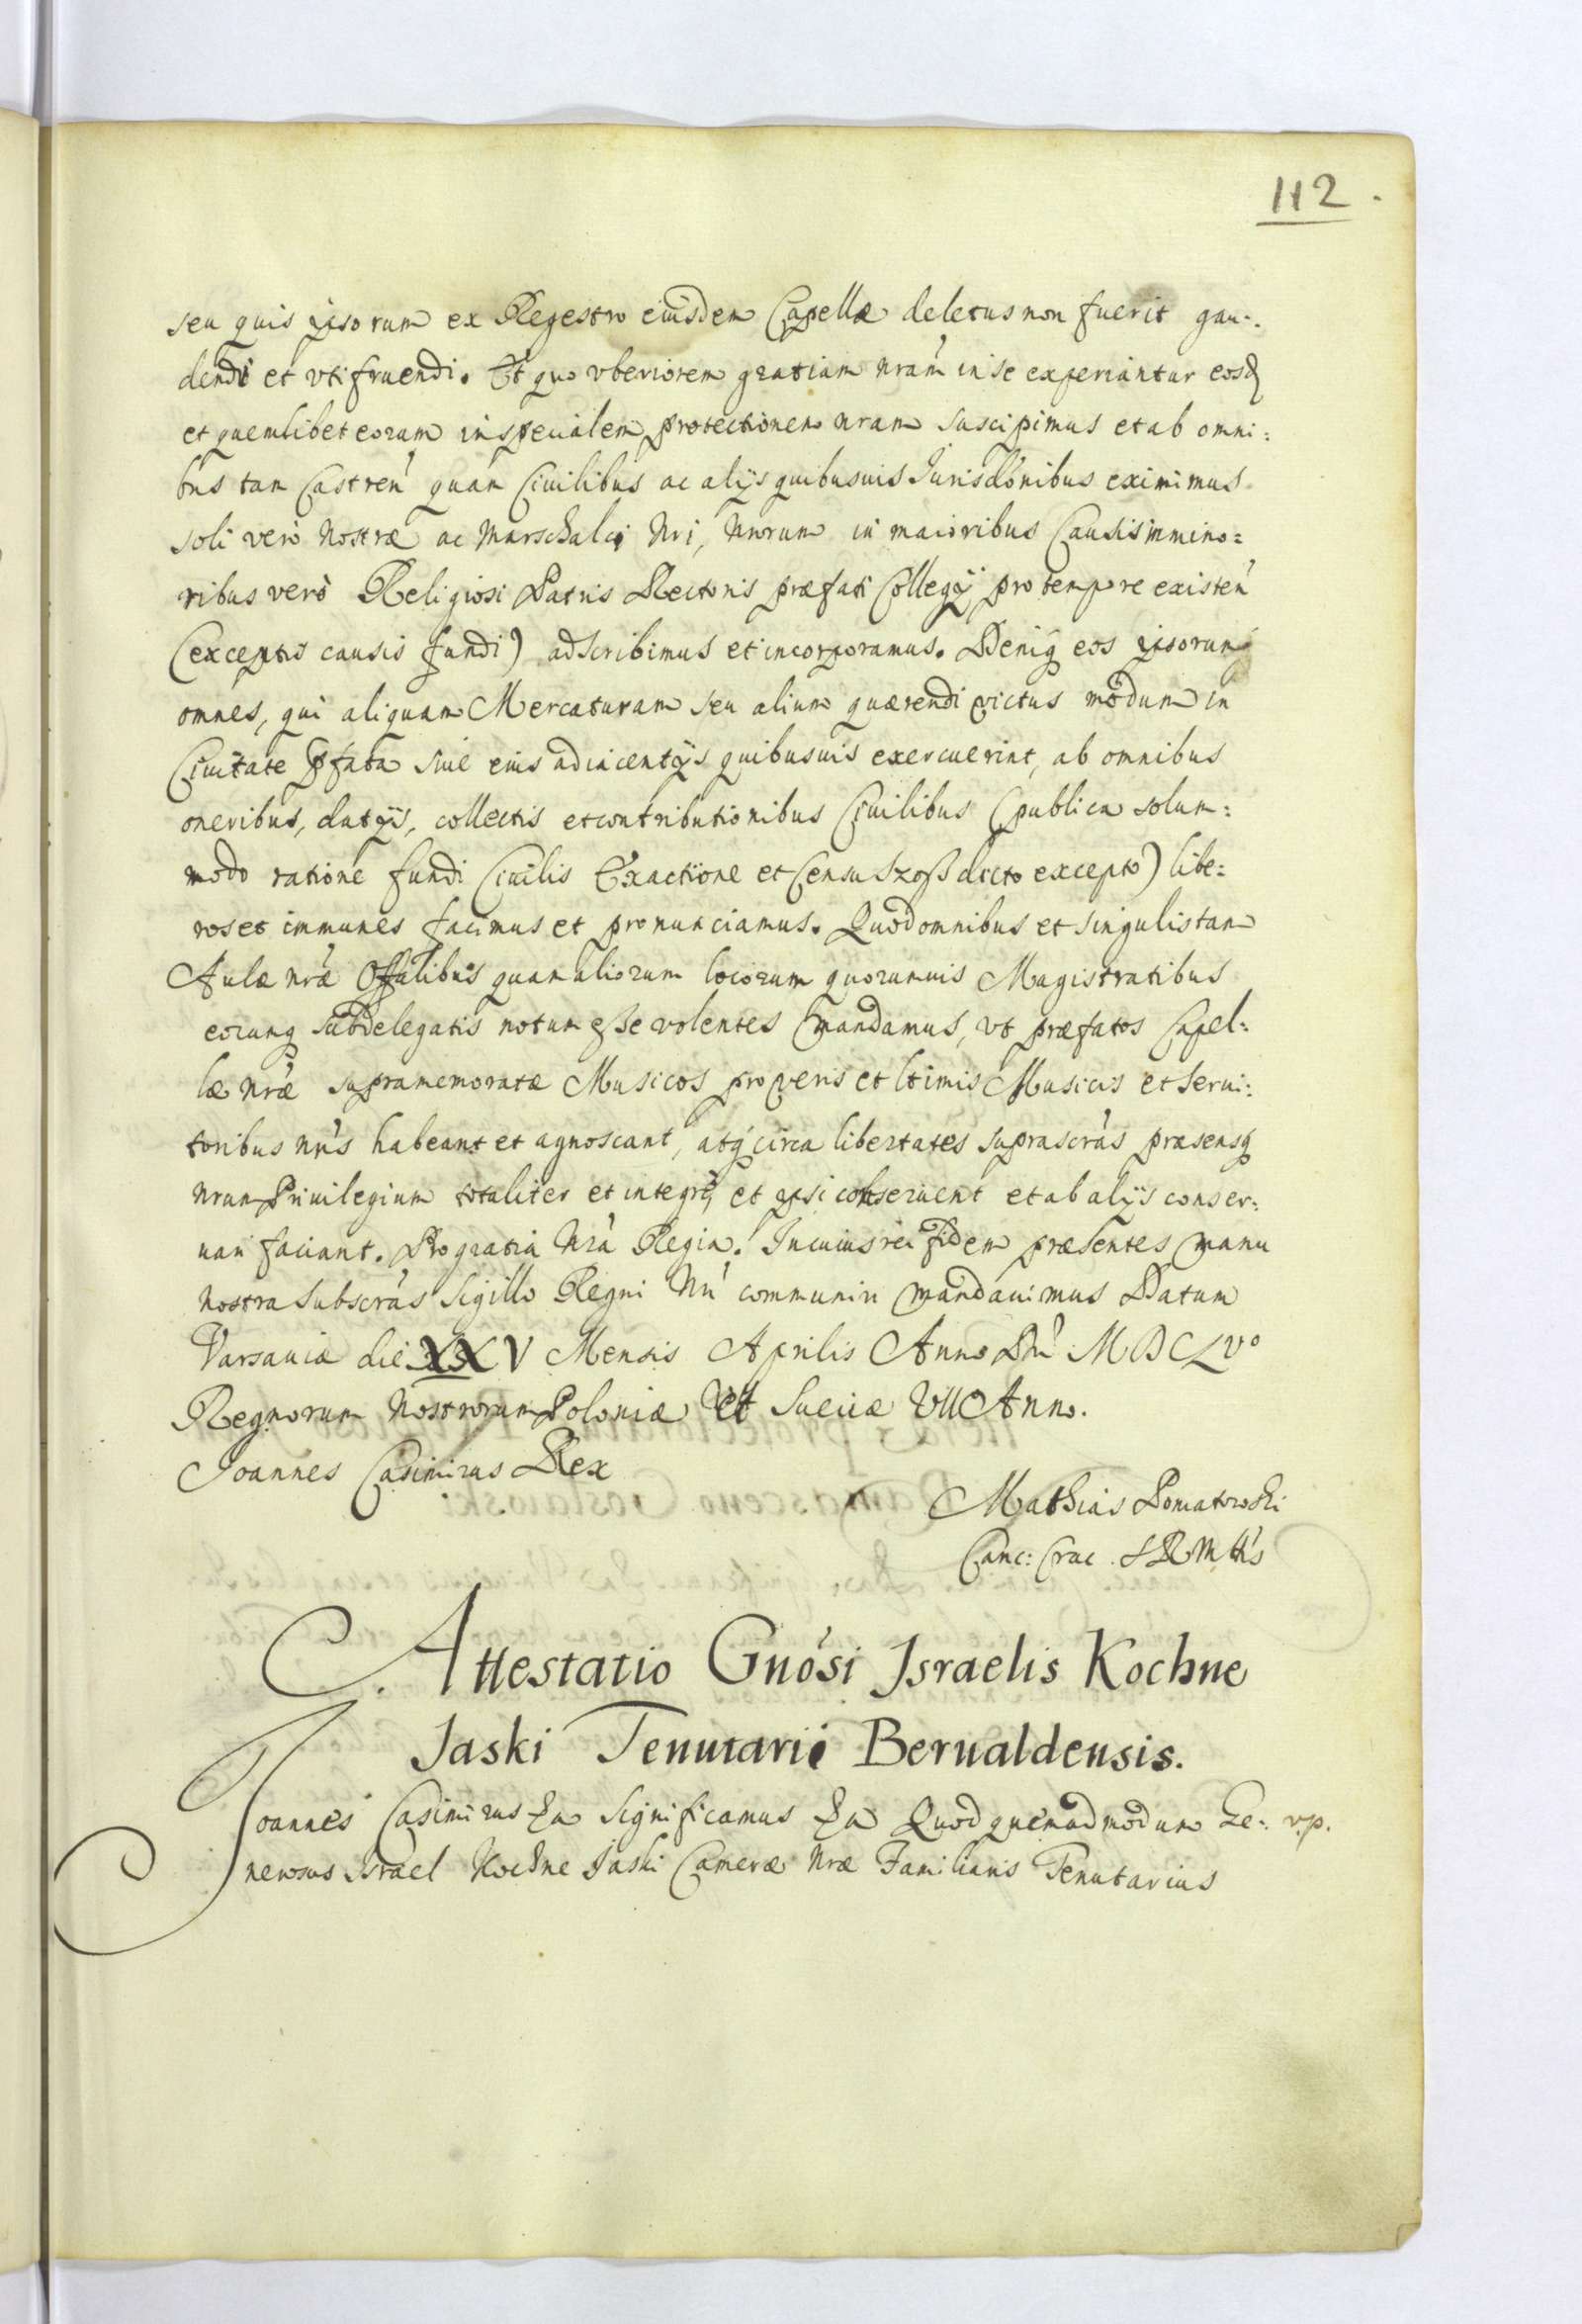 112.
seu quis ipsorum ex Regestro eiusdem Capellæ deletus non fuerit gau:
dendi et vtifruendi. Et quo vberiorem gratiam nram in se experiantur eosd
et quemlibet eorum in specialem protectionem nram suscipimus et ab omni:
bus tam Castren quam Ciuilibus ac alijs quibusuis Jurisdonibus eximimus
soli vero nostræ ac Marschalci Nri, Nrorum in maioribus Causis in mino:
ribus vero Religiosi Patris Rectoris præfati Collegij pro tempore existen
(exceptis causis fundi) adscribimus et incorporamus. Deniq eos ipsorum
omnes, qui aliquam Mercaturam seu alium quærendi victus modum in
Ciuitate pfata siue eius adiacentijs quibusuis exercuerint, ab omnibus
oneribus, datijs, collectis et contributionibus Ciuilibus (publica solum:
modo ratione fundi Ciuilis Exactione et Censu Szoß dicto excepto) libe:
ros et immunes facimus et pronunciamus. Quod omnibus et singulis tam
Aulæ nræ Offalibus quam aliorum locorum quorumuis Magistratibus
eorumq subdelegatis notum eße volentes mandamus, vt præfatos Capel:
læ nræ supramemoratæ Musicos pro veris et ltimis Musicis et Serui:
toribus nris habeant et agnoscant, atq circa libertates suprascras præsensq
nrum Priuilegium totaliter et integre, et ipsi conseruent et ab alijs conser:
uari faciant. Pro gratia Nra Regia. In cuius rei fidem præsentes manu
nostra Subscras Sigillo Regni Nri communiri mandauimus Datum
Varsauiæ die XXV Mensis Aprilis Anno Dni MDCLVo
Regnorum Nostrorum Poloniæ et Sueciæ VII Anno.
Joannes Casimirus Rex
Mathias Poniatowski
Canc: Crac. S R M ttis
Attestatio Gnosi Israelis Kochne
Jaski Tenutarii Berualdensis.
Joannes Casimirus Ea Significamus Ea Quod quemadmodum Ge: v.p.
nerosus Israel Kochne Jaski Cameræ Nræ Familiaris Tenutarius